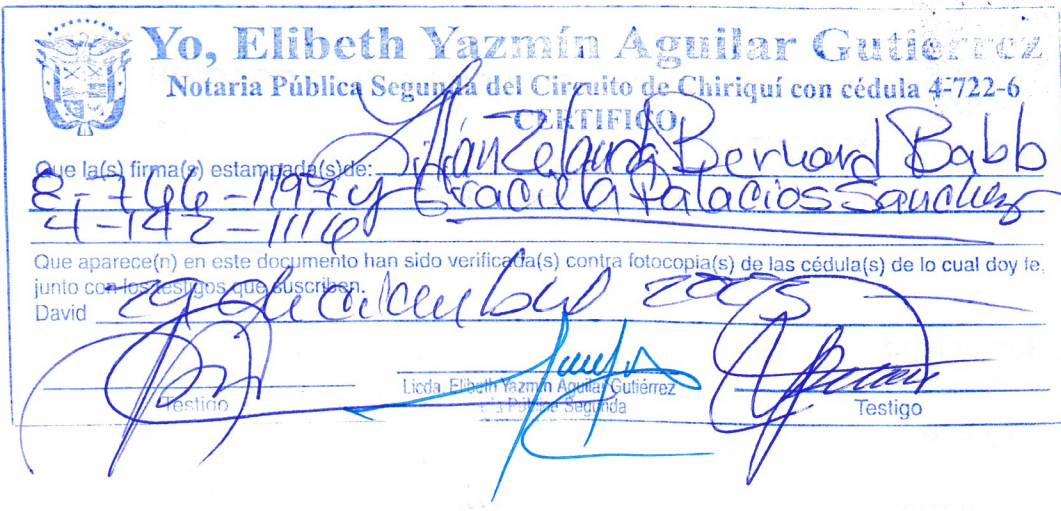 Yo, Elibeth Yazmín Aguilar Gutiérrez
Notaria Pública Segunda del Circuito de Chiriquí con cédula 4-722-6
CERTIFICO
Que la(s) firma(s) estampada(s) de: Bernard Babb
8-766-1197 y Graciela Palacios Sanchez
4-142-1116
Que aparece(n) en este documento han sido verificada(s) contra fotocopia(s) de las cédula(s) de lo cual doy fe,
junto con los testigos que suscriben.
David 29 de diciembre
Testigo
Licda. Elibeth Yazmín Aguilar Gutiérrez
Pública Segunda
Testigo